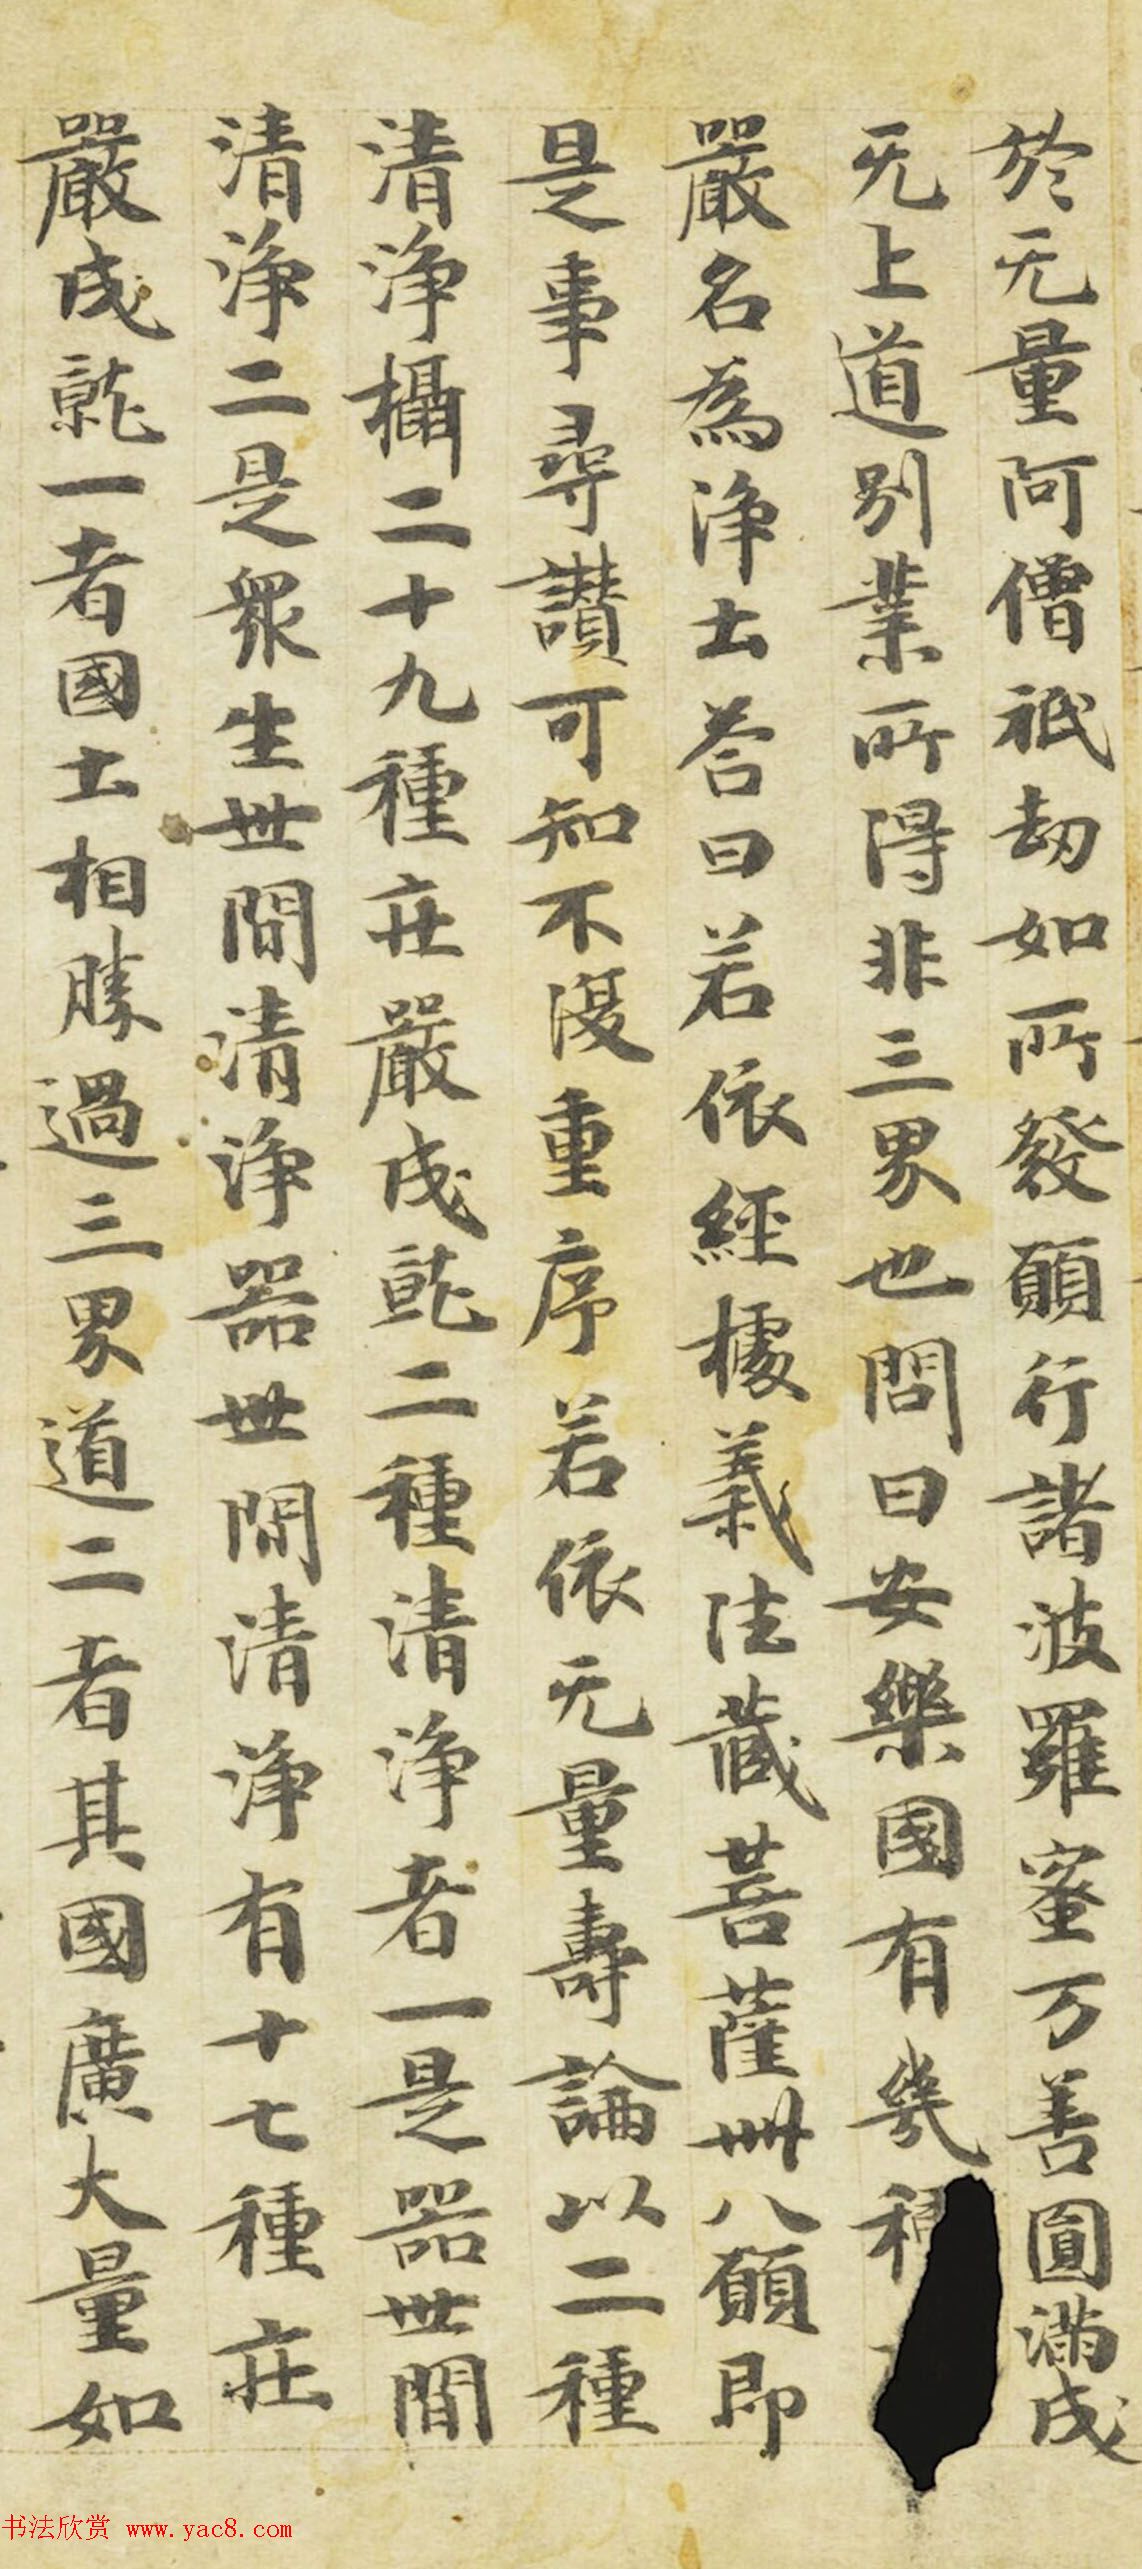 於无量阿僧祇劫如所發願行諸波羅蜜万善圓滿成
无上道別業所得非三界也問曰安樂國有幾種
嚴名為淨土荅曰若依經據義法藏菩薩卌八願即
是事尋讚可知不復重序若依无量壽論以二種
清淨攝二十九種庄嚴成就二種清淨者一是器世間
清淨二是眾生世間清淨器世間清淨有十七種庄
嚴成就一者國土相勝過三界道二者其國廣大量如
书法欣赏 www.yac8.com